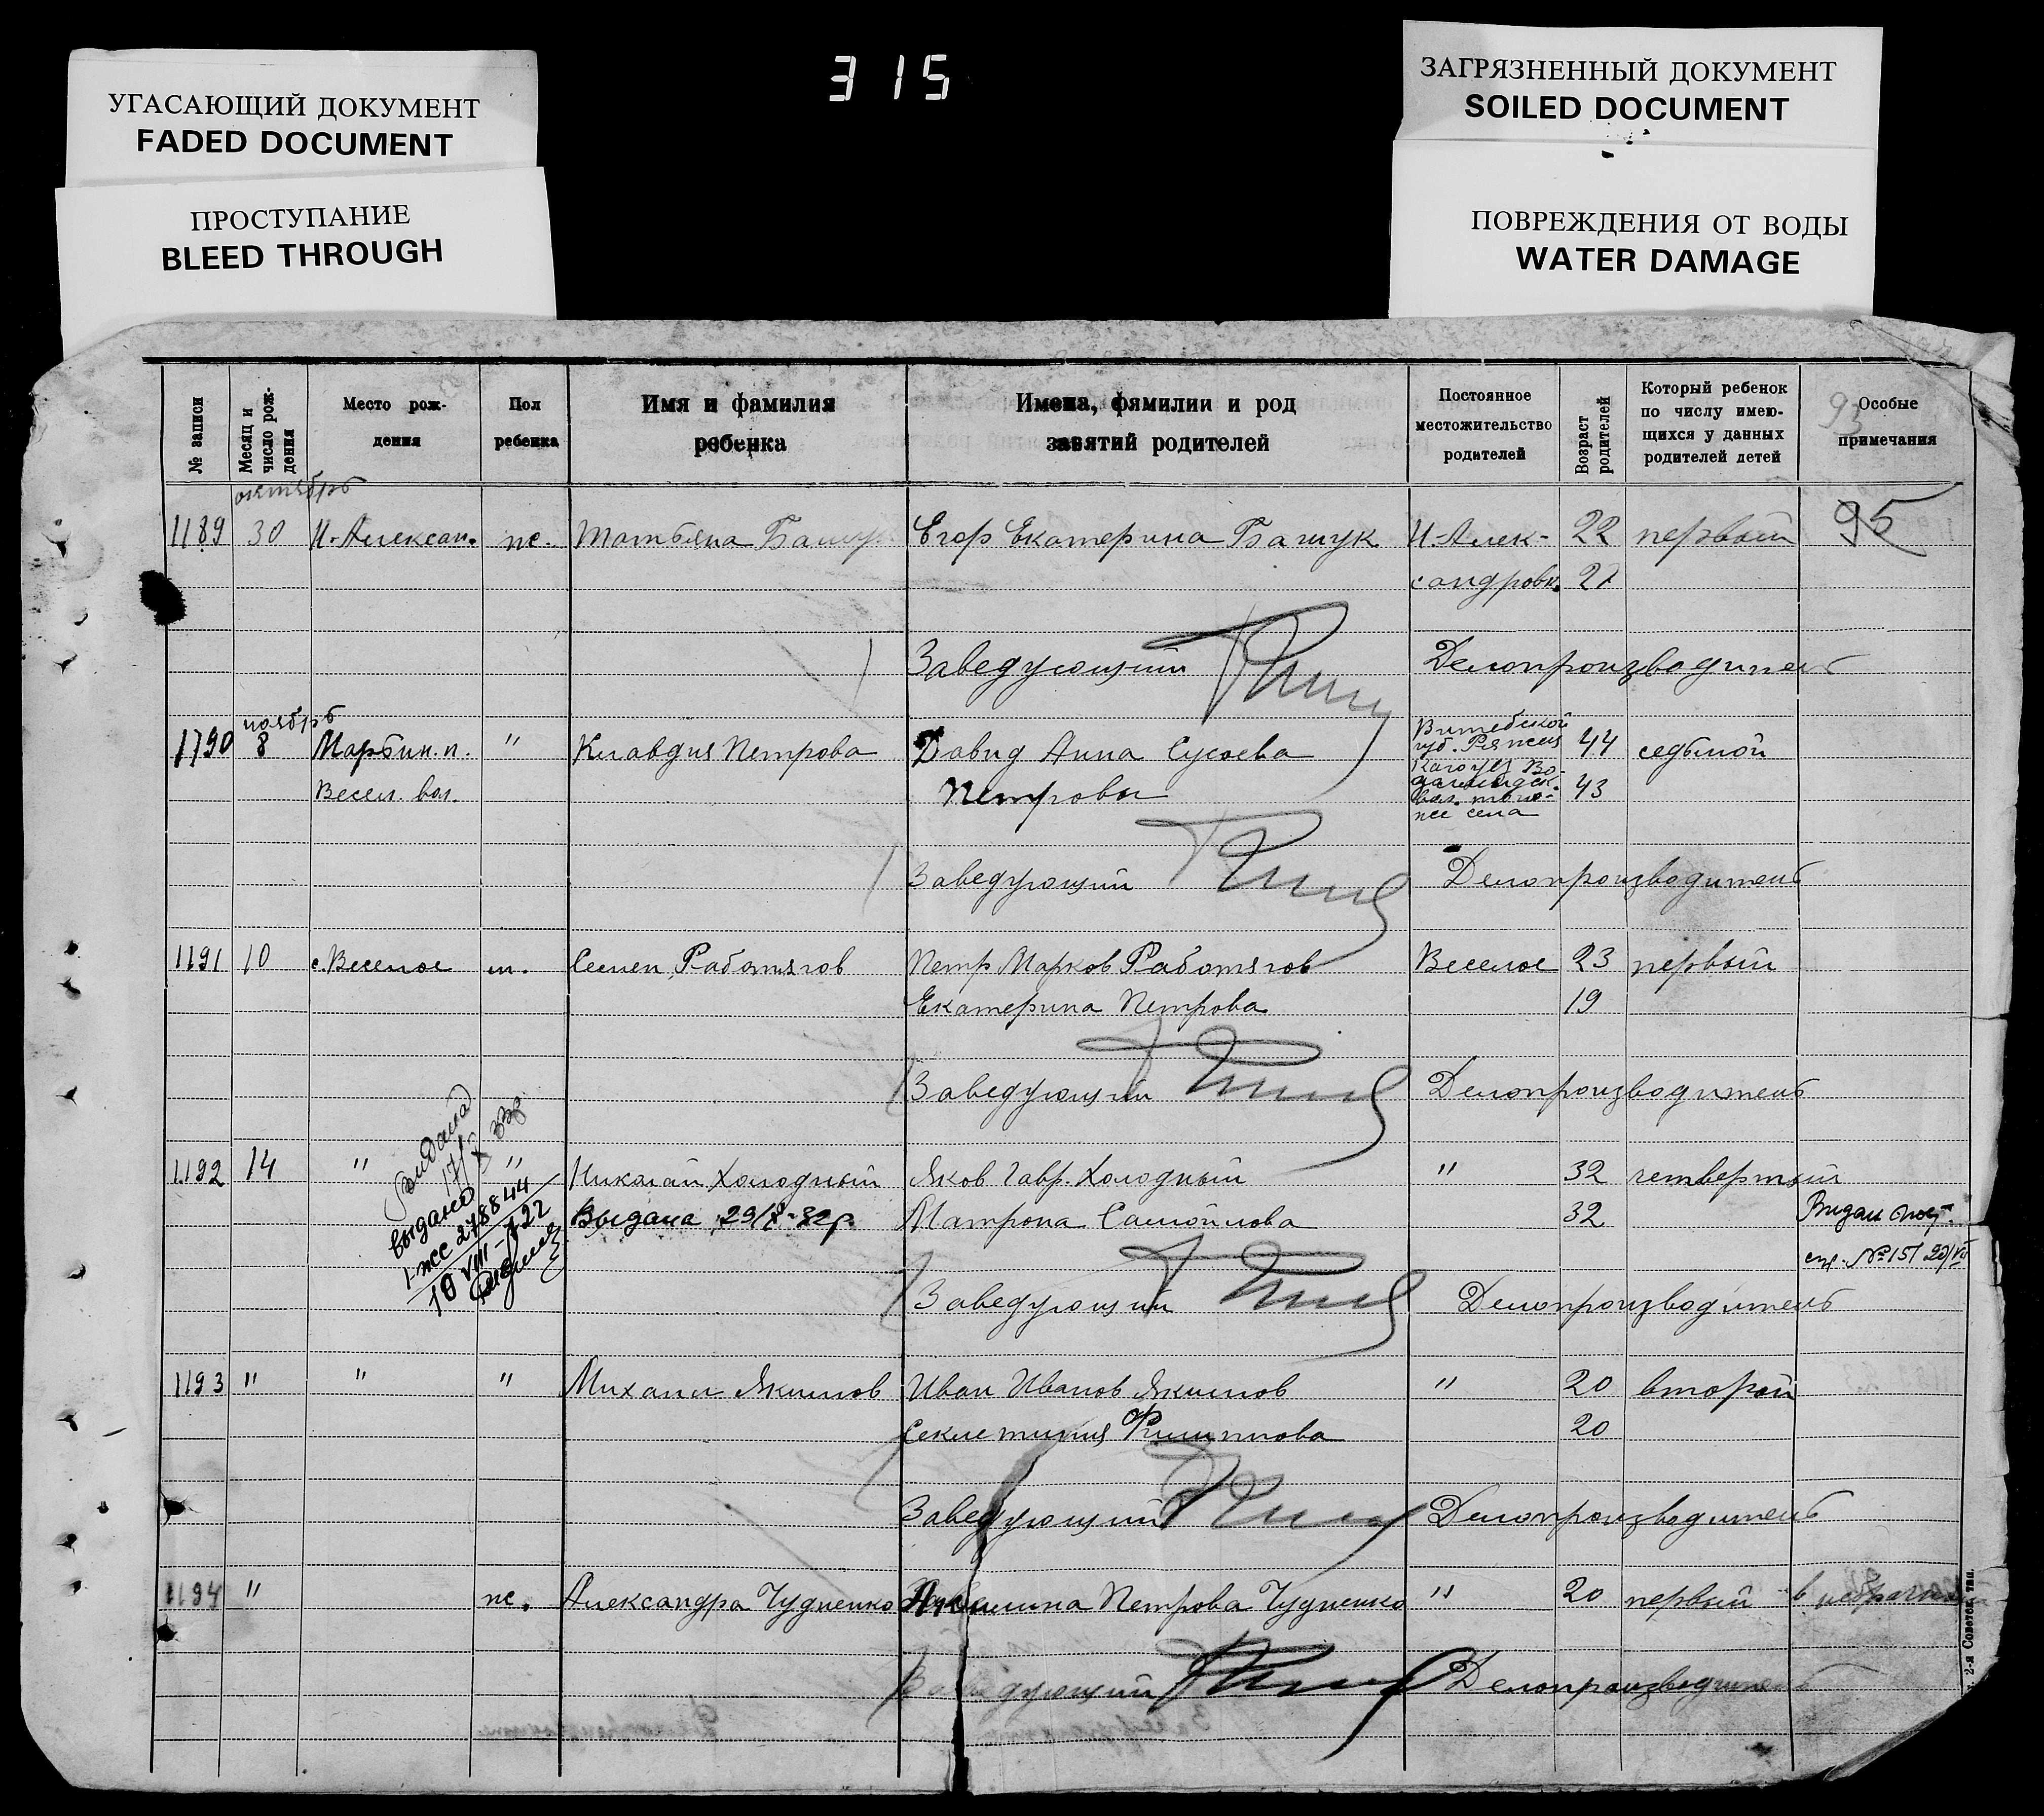 315
УГАСАЮЩИЙ ДОКУМЕНТ
FADED DOCUMENT
ПРОСТУПАНИЕ
BLEED THROUGH
ЗАГРЯЗНЕННЫЙ ДОКУМЕНТ
SOILED DOCUMENT
ПОВРЕЖДЕНИЯ ОТ ВОДЫ
WATER DAMAGE
№ записи
Месяц и число рождения
Место рож-
дения
Пол
ребенка
Имя и фамилия
ребенка
Имена, фамилии и род
занятий родителей
Постоянное
местожительство
родителей
Возраст
родителей
Который ребенок
по числу имею-
щихся у данных
родителей детей
Особые
примечания
93
95
октябрь
1189 30 Н-Алексан. ж. Татьяна Башу Егор Екатерина Башук Н-Алек- 22 первый
сандровк. 21
Заведующий Делопроизводитель
ноябрь
1790 8 Марьин. п. " Клавдия Петрова Давид Анна Сусоева Витебской губ. 44 седьмой
Весел. вол. Петровы 43
вол.
села
Заведующий Делопроизводитель
1191 10 с. Веселое м. Семен Работягов Петр Марков Работягов Веселое 23 первый
Екатерина Петрова 19
Заведующий Делопроизводитель
1192 14 " " Николай Холодный Яков Гавр. Холодный " 32 четвертый
Выдана 29/X-32р. Матрона Самойлова 32
выдано
278844
Заведующий Делопроизводитель
№151
1193 " " " Михаил Якимов Иван Иванов Якимов " 20 второй
Секлетиния Филиппова 20
Заведующий Делопроизводитель
1194 " ж. Александра Чудненко Акилина Петрова Чудненко " 20 первый
Заведующий Делопроизводитель
2-я Советск. тип.